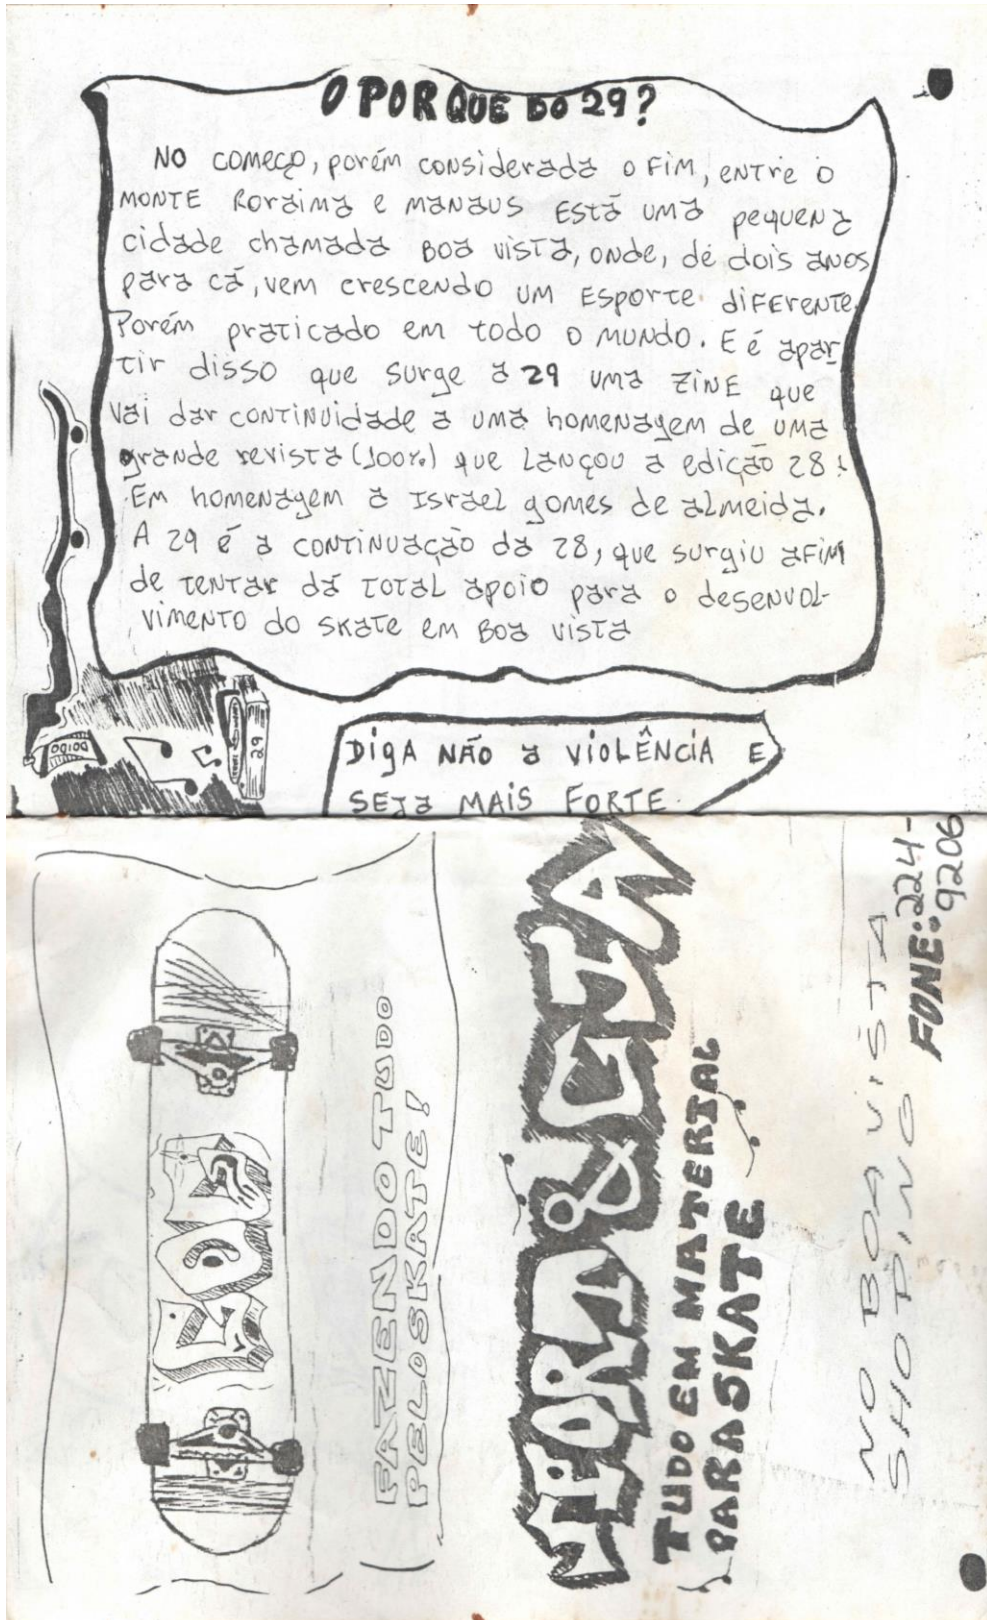 O POR QUE DO 29?
NO COMEÇO, porém considerada o FIM, entre o
MONTE Roraima e MANAUS ESTÁ UMA pequena
cidade chamada BOA VISTA, ONDE, de dois anos
para cá, vem crescendo UM ESPORTE diFERENTE
Porém praticado em todo o MUNDO. E é apar
tir disso que surge a 29 uma ZINE que
Vai dar CONTINUIDADE a uma homenagem de uma
grande revista (100%) que LANÇOU a edição 28!
Em homenagem a ISRAEL gomes de almeida.
A 29 é a CONTINUAÇÃO da 28, que surgiu aFIM
de TENTAR dá TOTAL apoio para o desenvol-
vimento do skate em BOA VISTA
DOIDO
29
DIGA NÃO a VIOLÊNCIA E
SEJA MAIS FORTE
FAZENDO TUDO
PELO SKATE!
& CIA
TUDO EM MATERIAL
PARA SKATE
NO BOA VISTA
SHOPING
FONE: 224-
9206